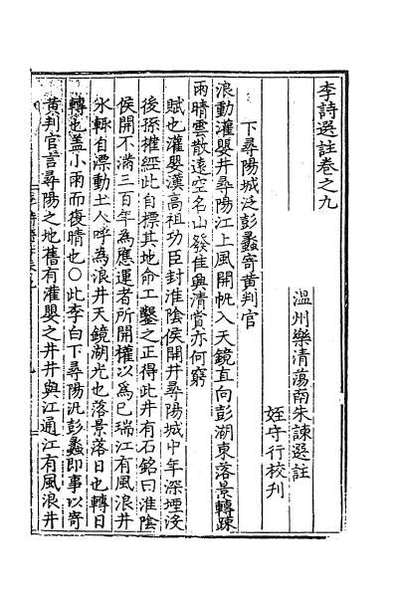 李詩選註卷之九
溫州樂清蕩南朱諫選註
姪守行校刋
下尋陽城泛彭蠡寄黃判官
浪動灌嬰井尋陽江上風開帆入天鏡直向彭湖東落景轉踈
雨晴雲散遠空名山發佳興清賞亦何窮
賦也灌嬰漢高祖功臣封淮陰侯開井尋陽城中年深堙沒
後孫權經此自標其地命工鑿之正得此井有石銘曰淮陰
侯開不滿三百年為應運者所開權以為已瑞江有風浪井
水輙自漂動土人呼為浪井天鏡湖光也落景落日也轉日
轉也盖小雨而復晴也○此李白下尋陽汎彭蠡即事以寄
黃判官言尋陽之地舊有灌嬰之井井與江通江有風浪井